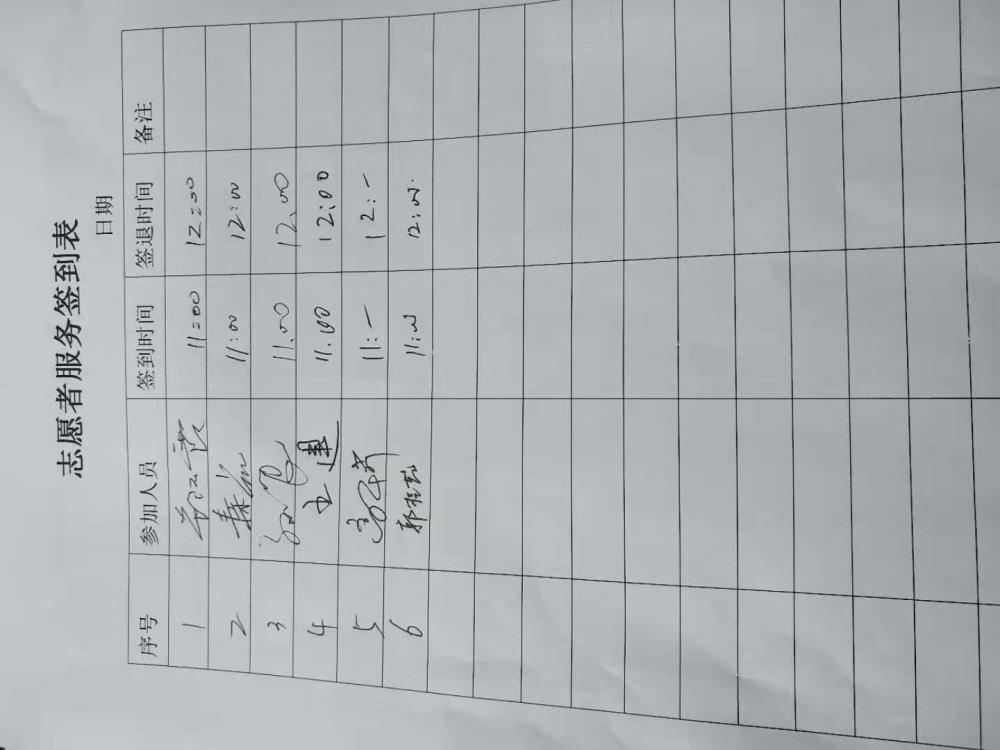 志愿者服务签到表
日期
序号 参加人员 签到时间 签退时间 备注
1 11:00 12:00
2 11:00 12:00
3 11.00 12.00
4 11.00 12:00
5 11:- 12:-
6 11:00 12:00.